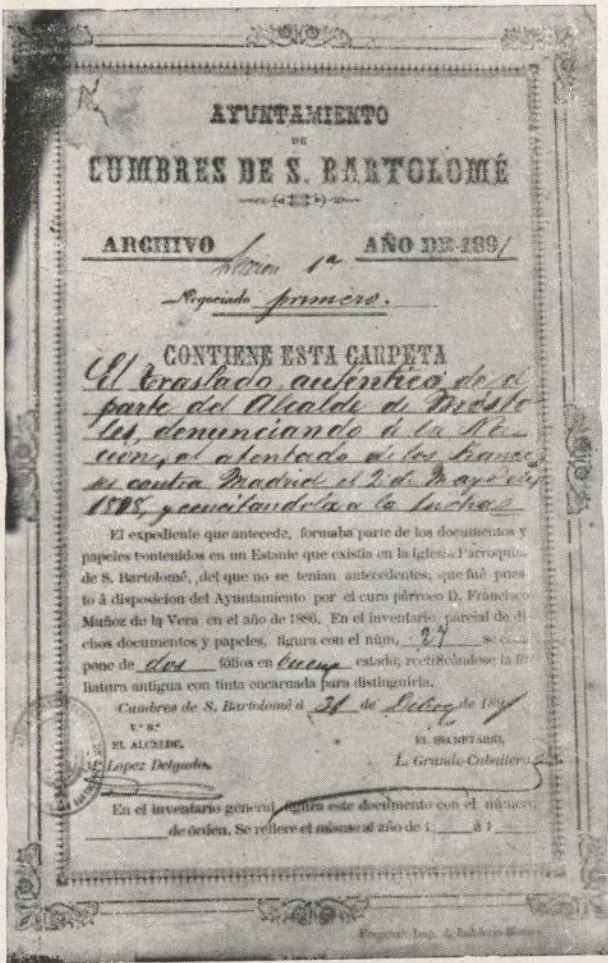 AYUNTAMIENTO
DE
CUMBRES DE S. BARTOLOMÉ
ARCHIVO AÑO DE 1891
Seccion 1ª
Negociado primero.
CONTIENE ESTA CARPETA
El traslado auténtico de el
parte del Alcalde de Mósto
les, denunciando á la Na-
cion, el atentado de los France
ses contra Madrid el 2 de Mayo de
1808, y concitandola a la lucha
El expediente que antecede, formaba parte de los documentos y
papeles contenidos en un Estante que existia en la iglesia Parroquial
de S. Bartolomé, del que no se tenian antecedentes, que fué pues
to á disposicion del Ayuntamiento por el cura párroco D. Francisco
Muñoz de la Vera en el año de 1886. En el inventario parcial de di
chos documentos y papeles, figura con el núm. 27 se com
pone de dos fólios en buen estado, rectificándose la fo
liatura antigua con tinta encarnada para distinguirla.
Cumbres de S. Bartolomé á 31 de Dcbre de 1891
V.º B.º
EL ALCALDE, EL SECRETARIO,
Lopez Delgado. L. Grande Caballero
En el inventario general figura este documento con el número
de órden. Se refiere el mismo al año de 1 á 1
Fregenal: Imp. de